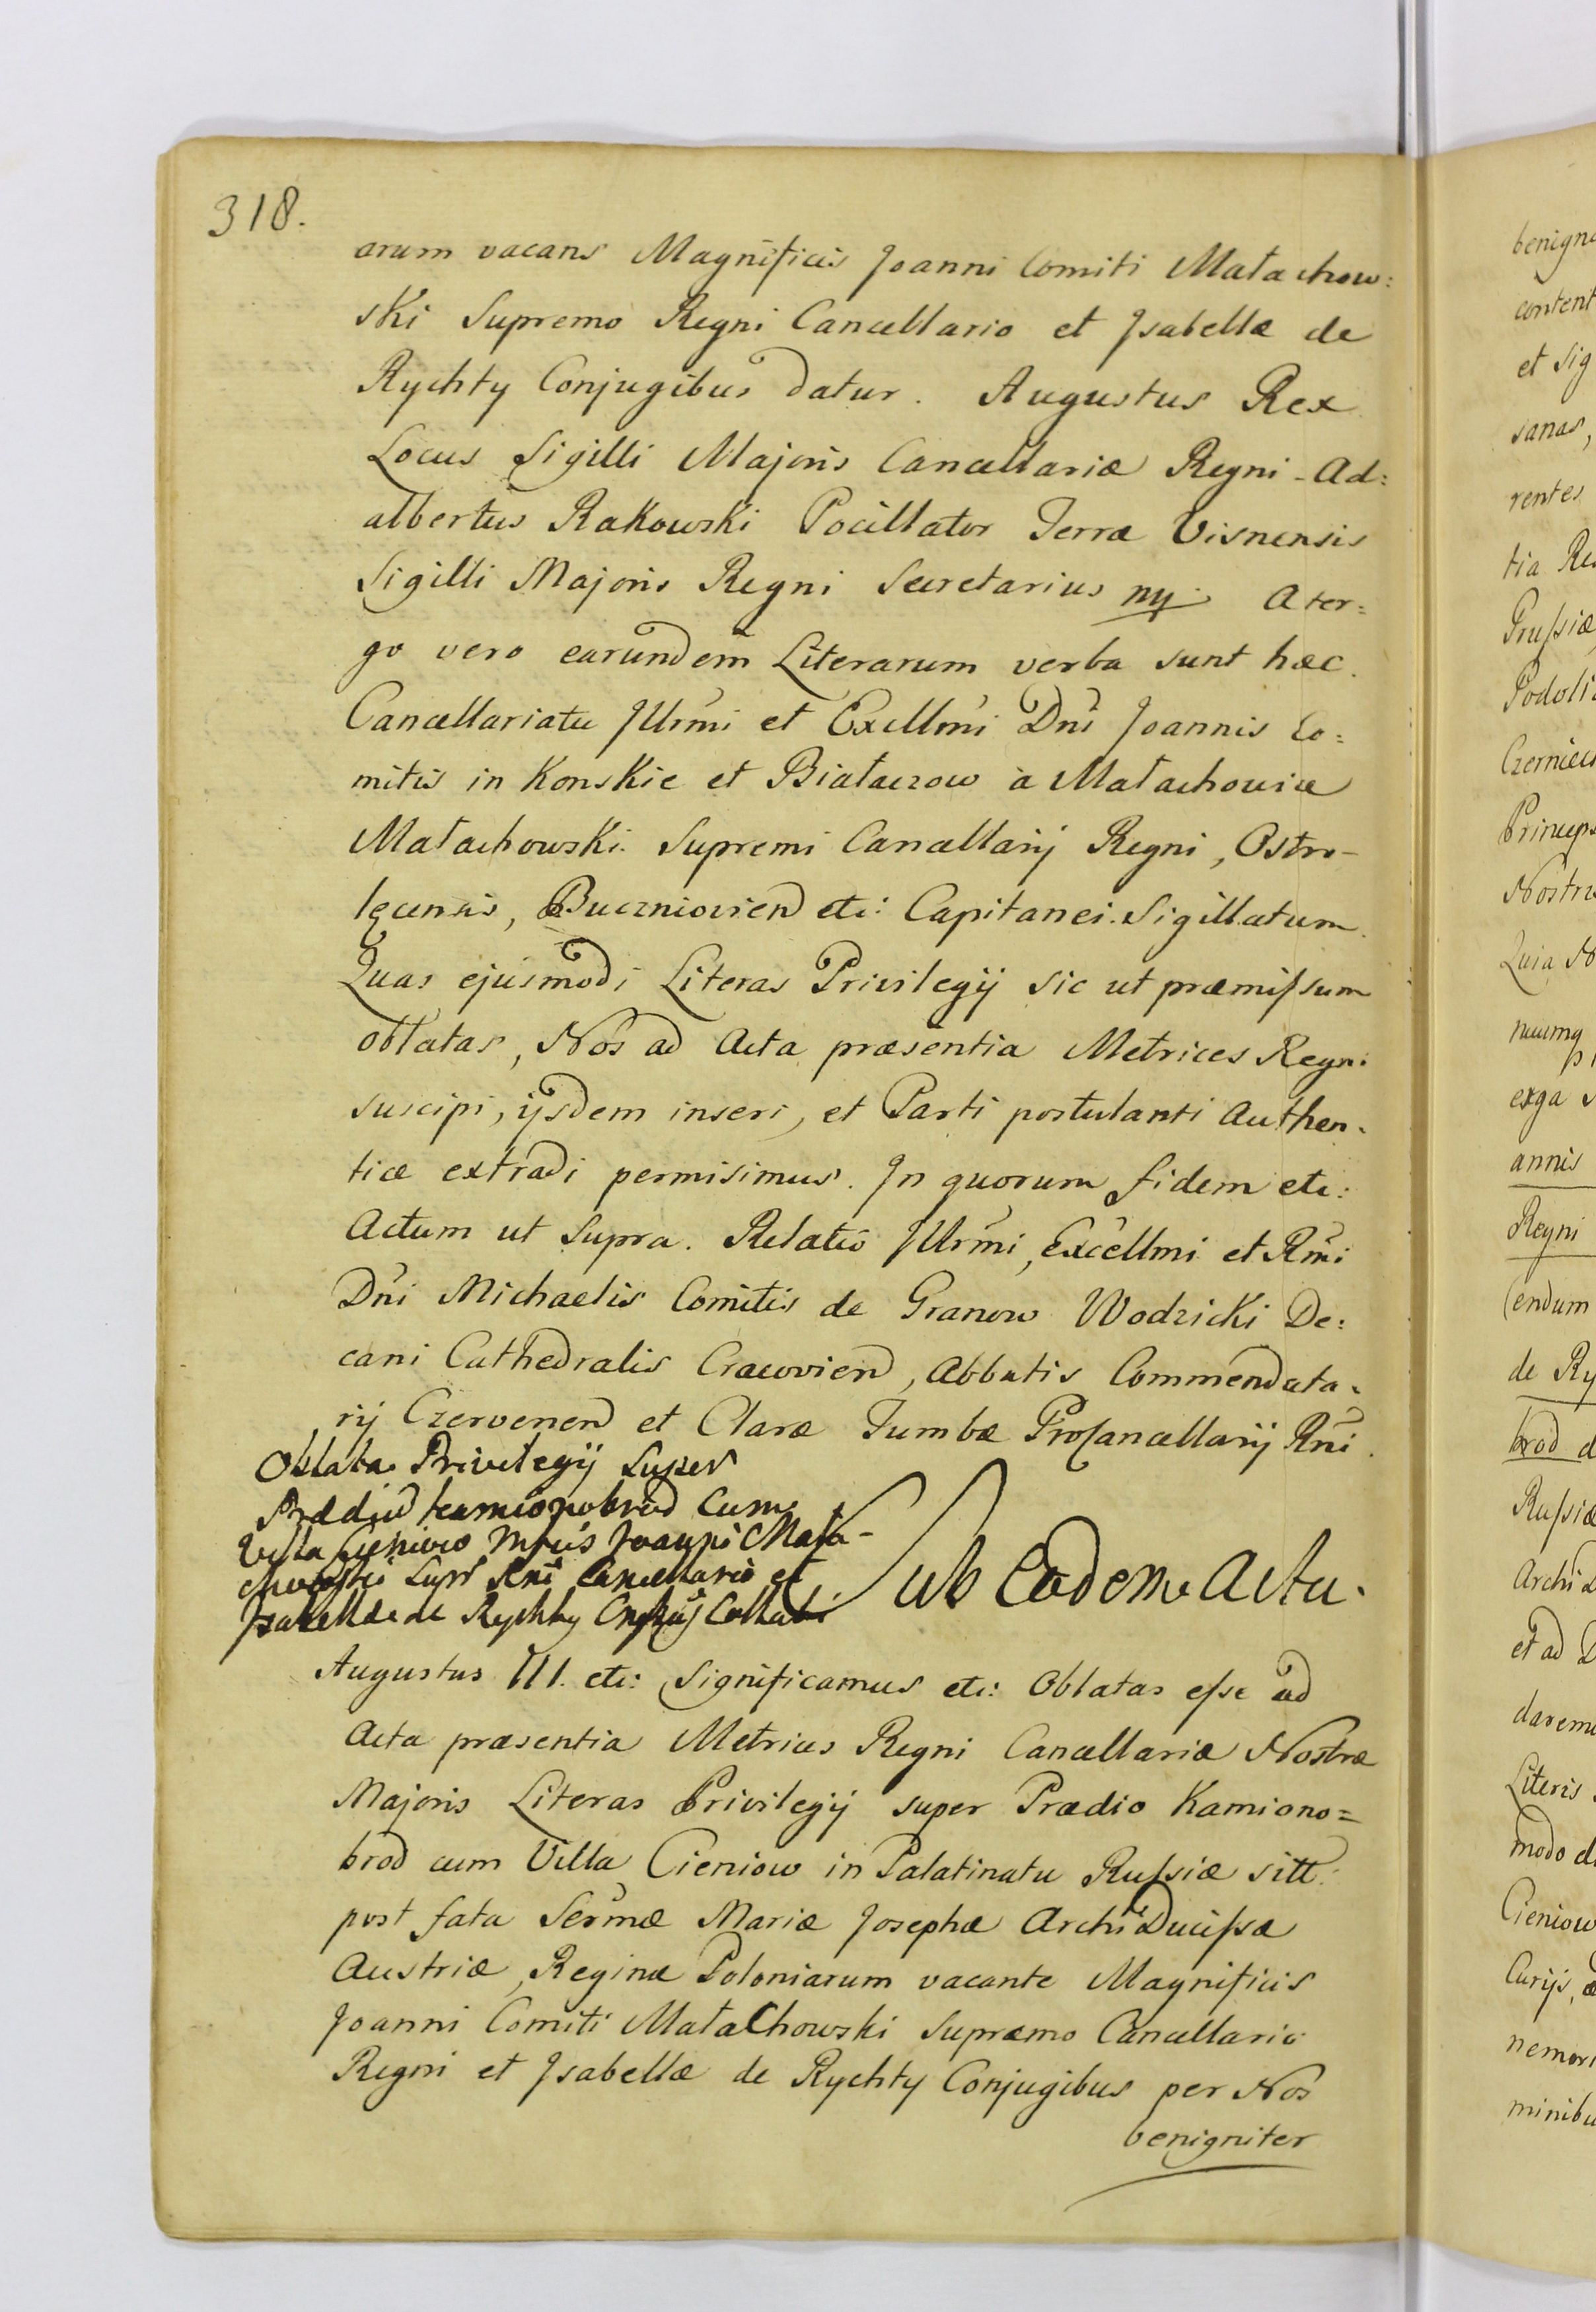 318.
arum vacans Magnificis Joanni Comiti Małachow:
ski Supremo Regni Cancellario et Jsabellæ de
Rychty Conjugibus datur. Augustus Rex
Locus Sigilli Majoris Cancellariæ Regni - Ad:
albertus Rakowski Pocillator Terræ Visnensis
Sigilli Majoris Regni Secretarius mp. A ter=
go vero earundem Literarum verba sunt hæc.
Cancellariatu Jllrmi et Excellmi Dni Joannis Co=
mitis in Konskie et Białaczow à Małachowice
Małachowski Supremi Cancellarij Regni, Ostro-
lęcensis, Bucznioviend etc: Capitanei. Sigillatum.
Quas ejusmodi Literas Privilegij sic ut præmissum
oblatas, Nos ad Acta præsentia Metrices Regni
suscipi, ijsdem inseri, et Parti postulanti Authen-
ticæ extradi permisimus. Jn quorum fidem etc:
Actum ut Supra. Relatio Jllrmi, Excellmi et Rmi
Dni Michaelis Comitis de Granow Wodzicki De:
cani Cathedralis Cracoviend, Abbatis Commendata-
rij Czervenend et Claræ Tumbæ ProCancellarij Rni.
Oblata Privilegij Super
Prædiu Kamionobrod Cum
Villa Cieniow Mfcis Joanni Mała-
chowski Supr Rni Cancellario et
Jsabellæ de Rychty Conjugij Collati
Sub Eodem Actu.
Augustus III. etc: Significamus etc: Oblatas esse ad
Acta præsentia Metrices Regni Cancellariæ Nostræ
Majoris Literas Privilegij super Prædio Kamiono=
brod cum Villa Cieniow in Palatinatu Russiæ sitt:
post fata Sermæ Mariæ Josephæ ArchiDucissæ
Austriæ, Reginæ Poloniarum vacante Magnificis
Joanni Comiti MałaChowski Supremo Cancellario
Regni et Jsabellæ de Rychty Conjugibus per Nos
benigniter
content
et Sig
sanas,
rentes
tia Re
Prussiæ
Podoli
Czerniec
Princeps
Nostri
Quia N
erga
annis
Regni
endum
de Ry
brod d
Russiæ
Archi
et ad
darem
Literis
modo
Cieniow
Curijs,
nemori
minibu